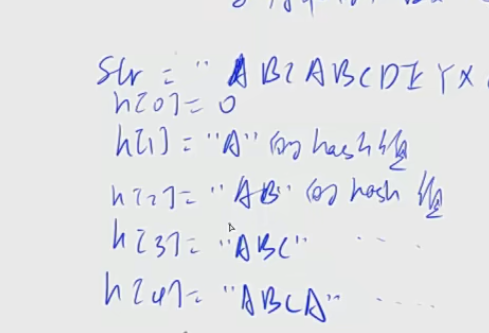 Str = "ABCABCDEYX
h[0] = 0
h[1] = "A" 的 hash 值
h[2] = "AB" 的 hash 值
h[3] = "ABC" ....
h[4] = "ABCA" ....